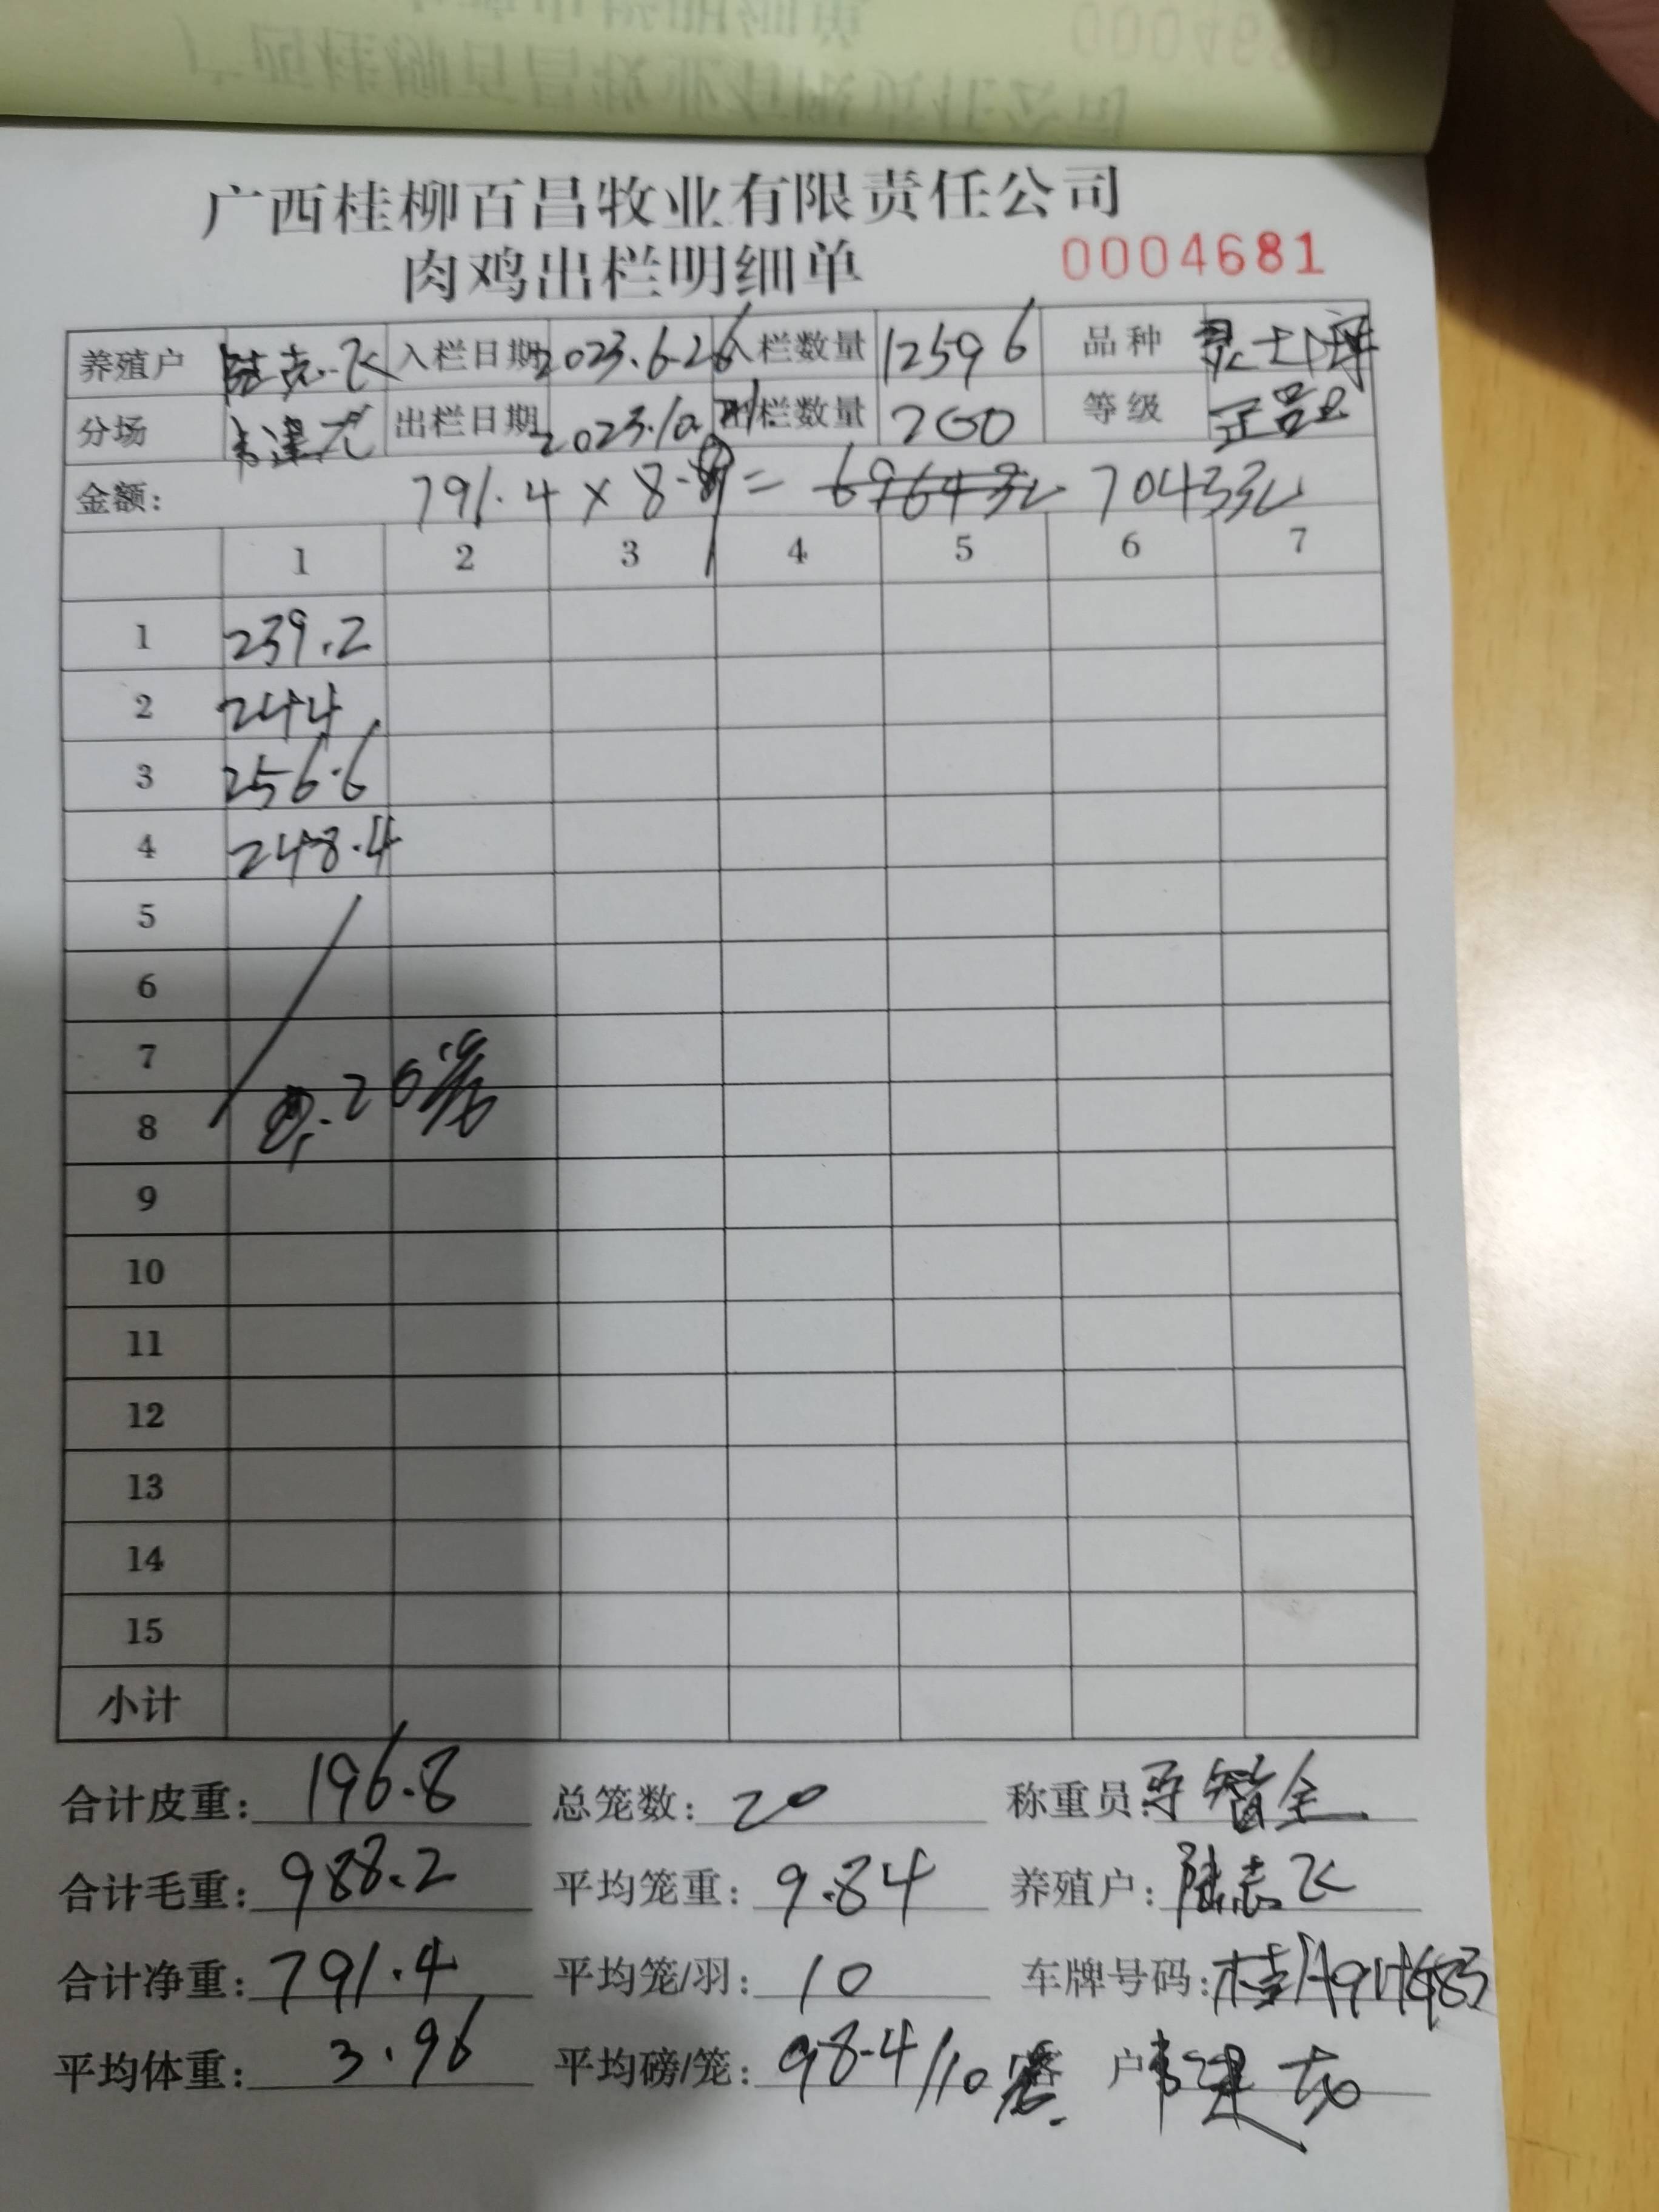 广西桂柳百昌牧业有限责任公司
肉鸡出栏明细单 0004681
养殖户 入栏日期 2023.6.26 入栏数量 12596 品种
分场 韦建龙 出栏日期 2023.10. 出栏数量 200 等级 正品
金额: 791.4 × 8.9 = 6964元 7043元
1 2 3 4 5 6 7
1 239.2
2 244
3 256.6
4 248.4
5
6
7
8 20笼
9
10
11
12
13
14
15
小计
合计皮重: 196.8 总笼数: 20 称重员:
合计毛重: 988.2 平均笼重: 9.84 养殖户: 陆志飞
合计净重: 791.4 平均笼/羽: 10 车牌号码:
平均体重: 3.96 平均磅/笼: 98.4/10 客户 韦建龙